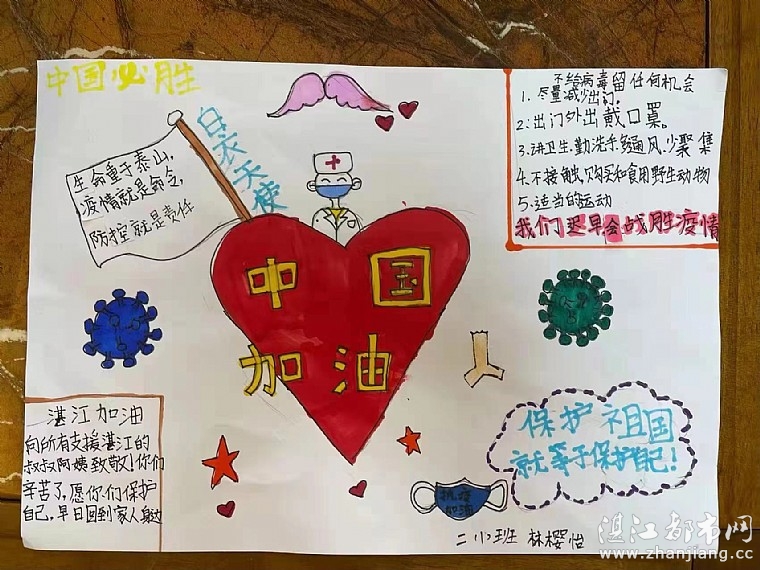 中国必胜
白衣天使
生命重于泰山,
疫情就是命令,
防控就是责任
不给病毒留任何机会
1. 尽量减少出门,
2. 出门外出戴口罩。
3. 讲卫生.勤洗手多通风.少聚集
4. 不接触,购买和食用野生动物
5. 适当的运动
我们迟早会战胜疫情
中国
加油
湛江加油
向所有支援湛江的
叔叔阿姨致敬!你们
辛苦了,愿你们保护
自己,早日回到家人身边
保护祖国
就等于保护自己!
抗疫
加油
二小2班 林樱怡
湛江都市网
www.zhanjiang.cc